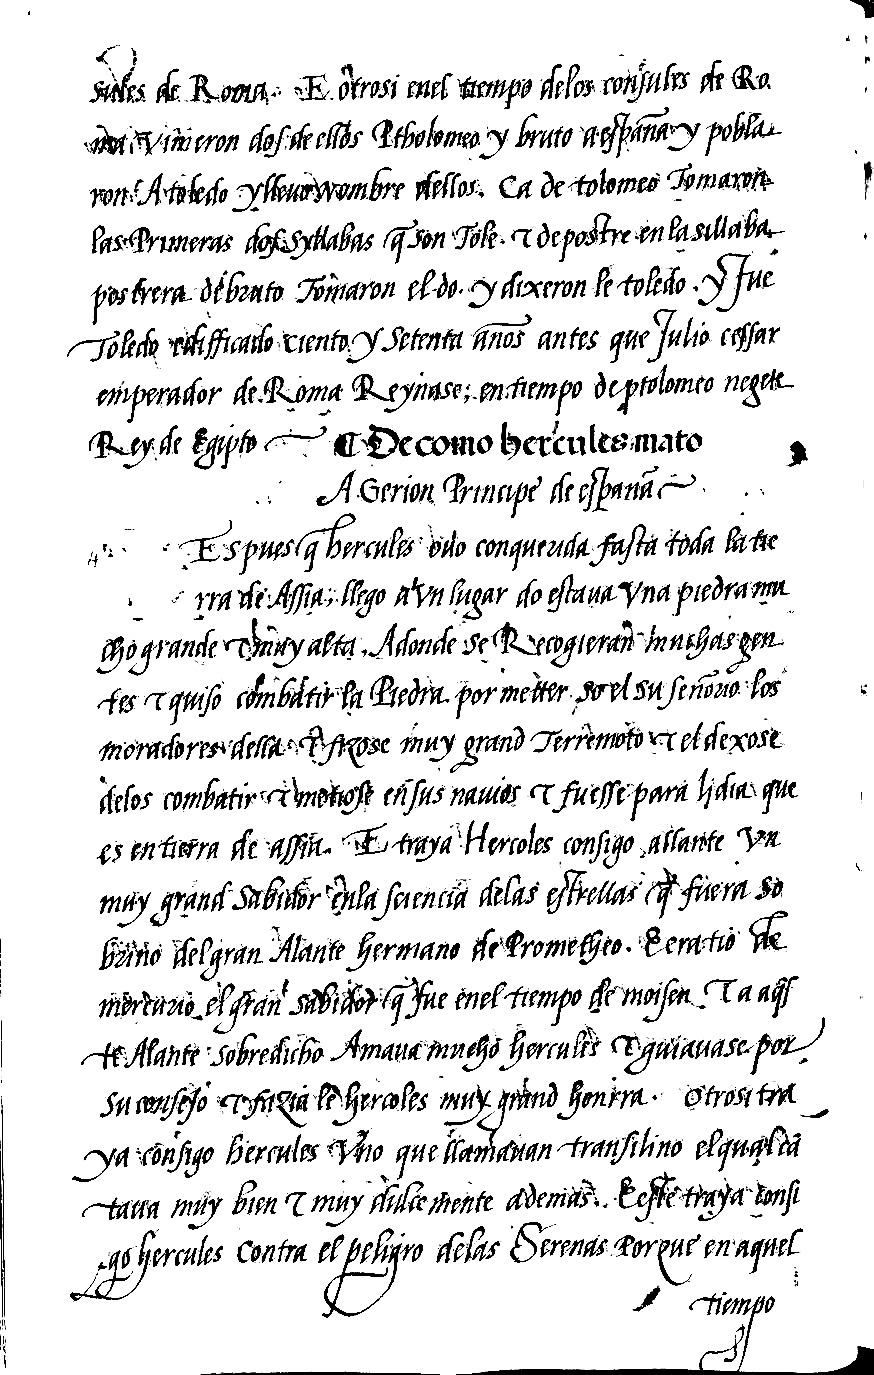 sules de Roma. E otrosi enel tiempo delos consules de Ro
ma vinieron dos de ellos Ptholomeo y bruto a españa y pobla
ron A toledo y llevo nombre dellos. Ca de tolomeo Tomaron
las Primeras dos Syllabas q̃ son Tole. τ de postre en la sillaba
postrera de bruto Tomaron el do. y dixeron le toledo. y fue
Toledo edifficado ciento y Setenta años antes que Julio cessar
emperador de Roma Reynase; en tiempo de ptolomeo negete
Rey de Egipto ¶ De como hercules mato
A Gerion Principe de españa
Espues q̃ hercules ovo conquerida fasta toda la tie
rra de Assia, llego a vn lugar do estava vna piedra mu
cho grande τ muy alta. Adonde se Recogieran muchas gen
tes τ quiso combatir la Piedra por metter so el su señorio los
moradores della τ fizose muy grand Terremoto τ el dexose
delos combatir τ metiose en sus navios τ fuesse para lidia que
es en tierra de assia. E traya Hercoles consigo allante vn
muy grand Sabidor enla sciencia delas estrellas q̃ fuera so
brino del gran Alante hermano de Prometheo. E era tio de
mercurio el gran sabidor q̃ fue enel tiempo de moisen τ a aqs
te Alante sobredicho Amava mucho hercules τ guiavase por
su consejo τ fazia le hercoles muy grand honrra. Otrosi tra
ya consigo hercules vno que llamavan transilino el qual cã
tava muy bien τ muy dulcemente ademas. E este traya consi
go hercules contra el peligro delas Serenas Porque en aquel
tiempo